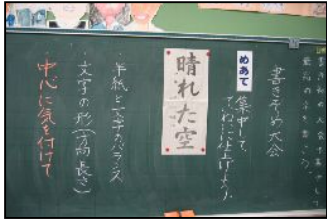 書きぞめ大会
めあて
集中して
ていねいに仕上げよう
晴れた空
半紙と文字のバランス
文字の形(方向、長さ)
中心に気を付けて